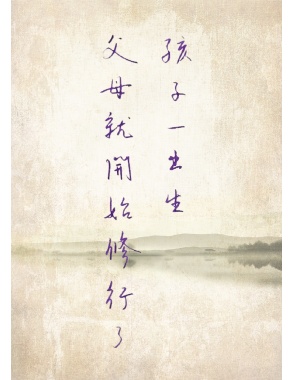 孩子一出生
父母就開始修行了